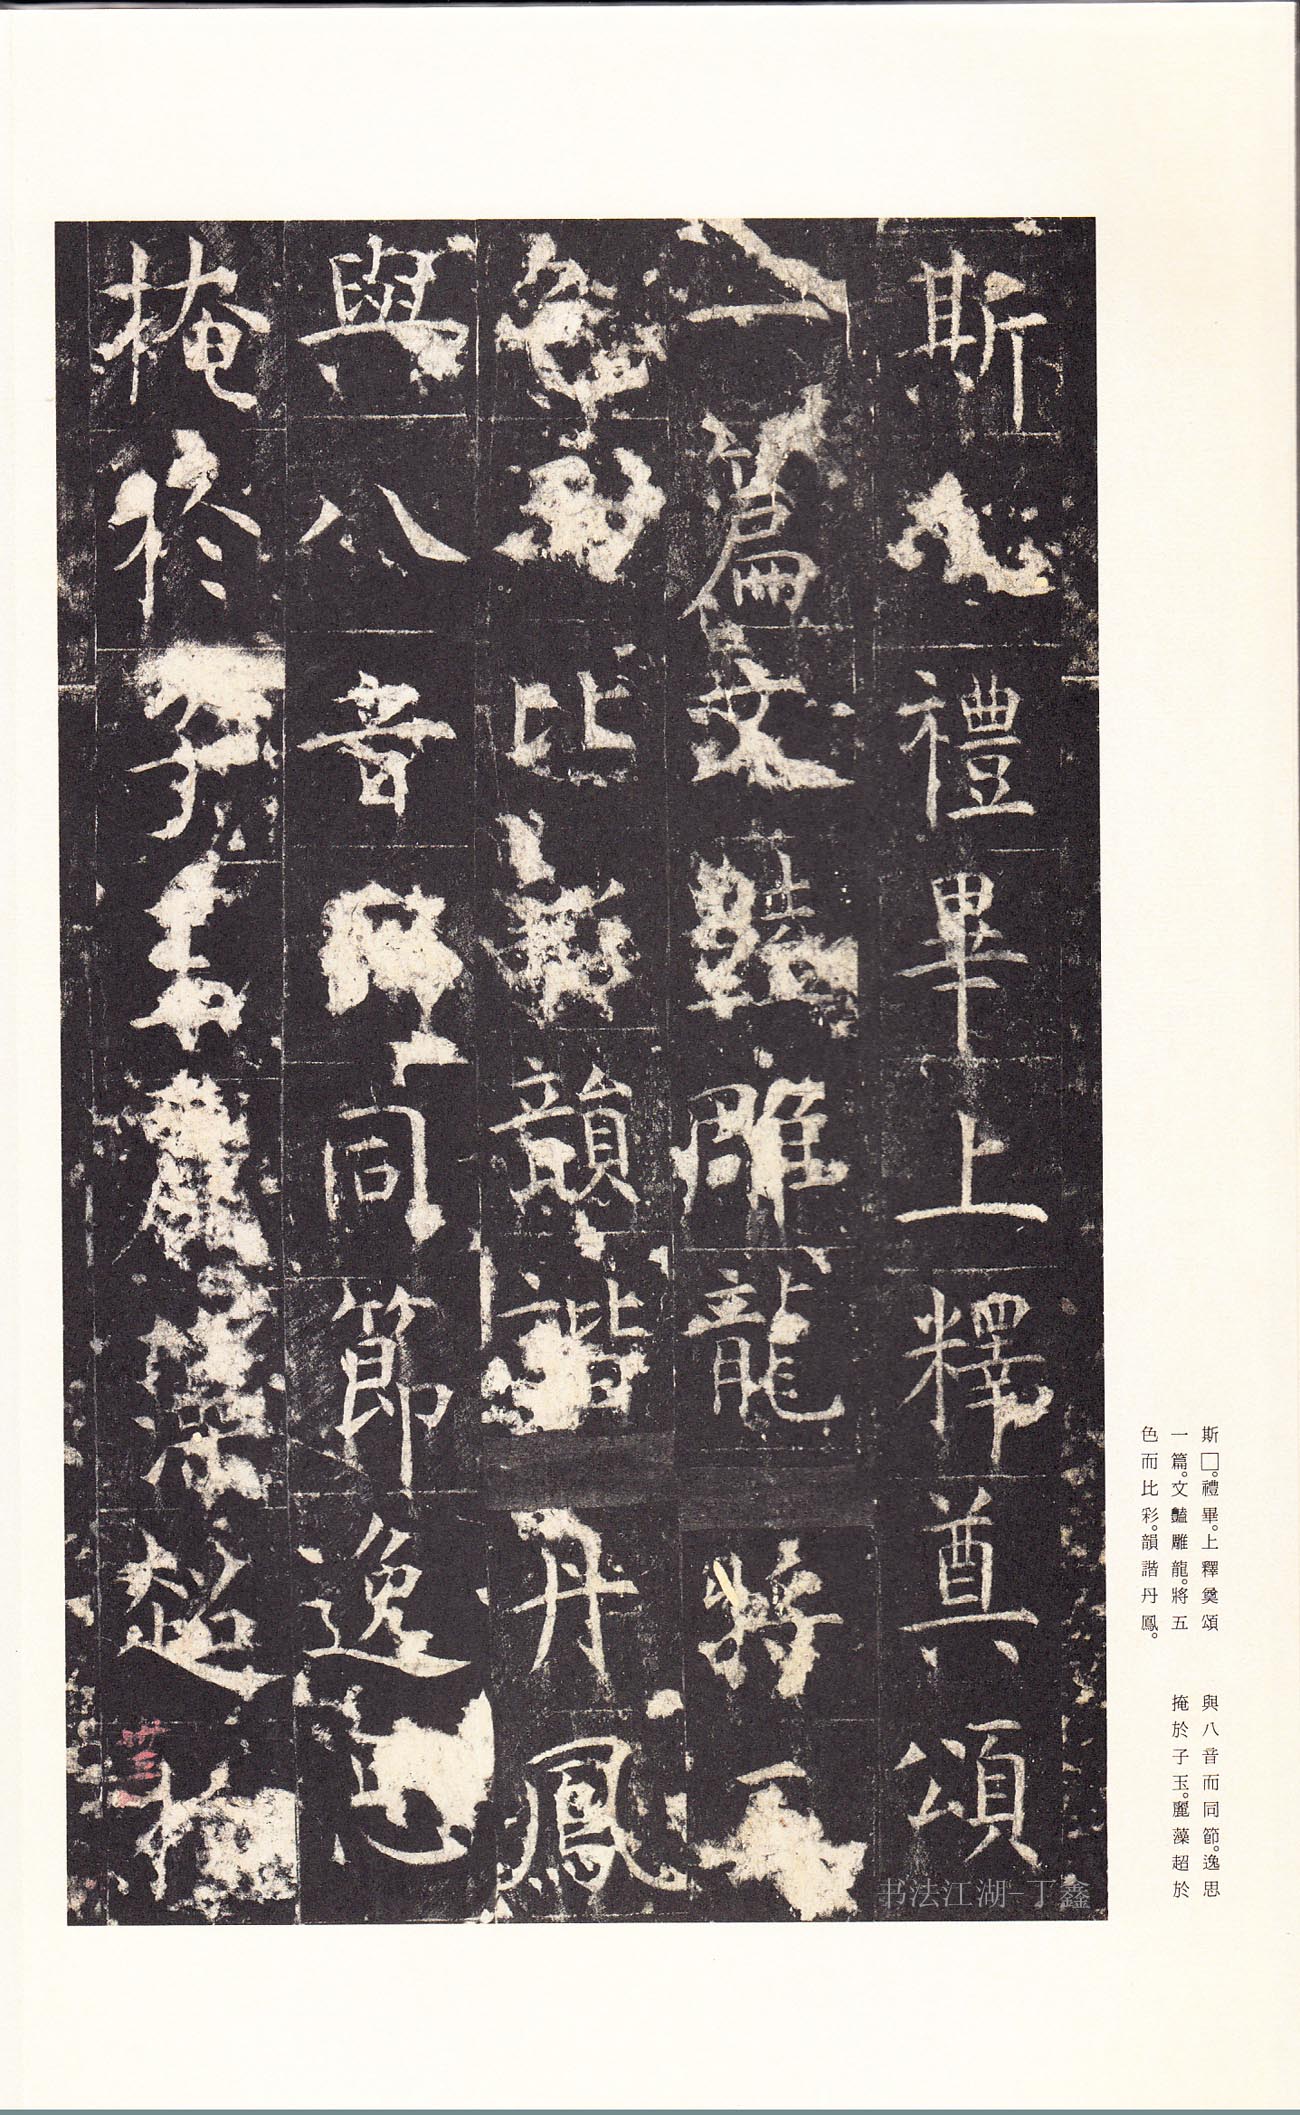 斯□禮畢上釋奠頌
一篇文豔雕龍將五
色而比彩韻諧丹鳳
與八音而同節逸思
掩於子玉麗藻超於
斯□。禮畢。上釋奠頌
一篇。文豔雕龍。將五
色而比彩。韻諧丹鳳。
與八音而同節。逸思
掩於子玉。麗藻超於
书法江湖-丁鑫